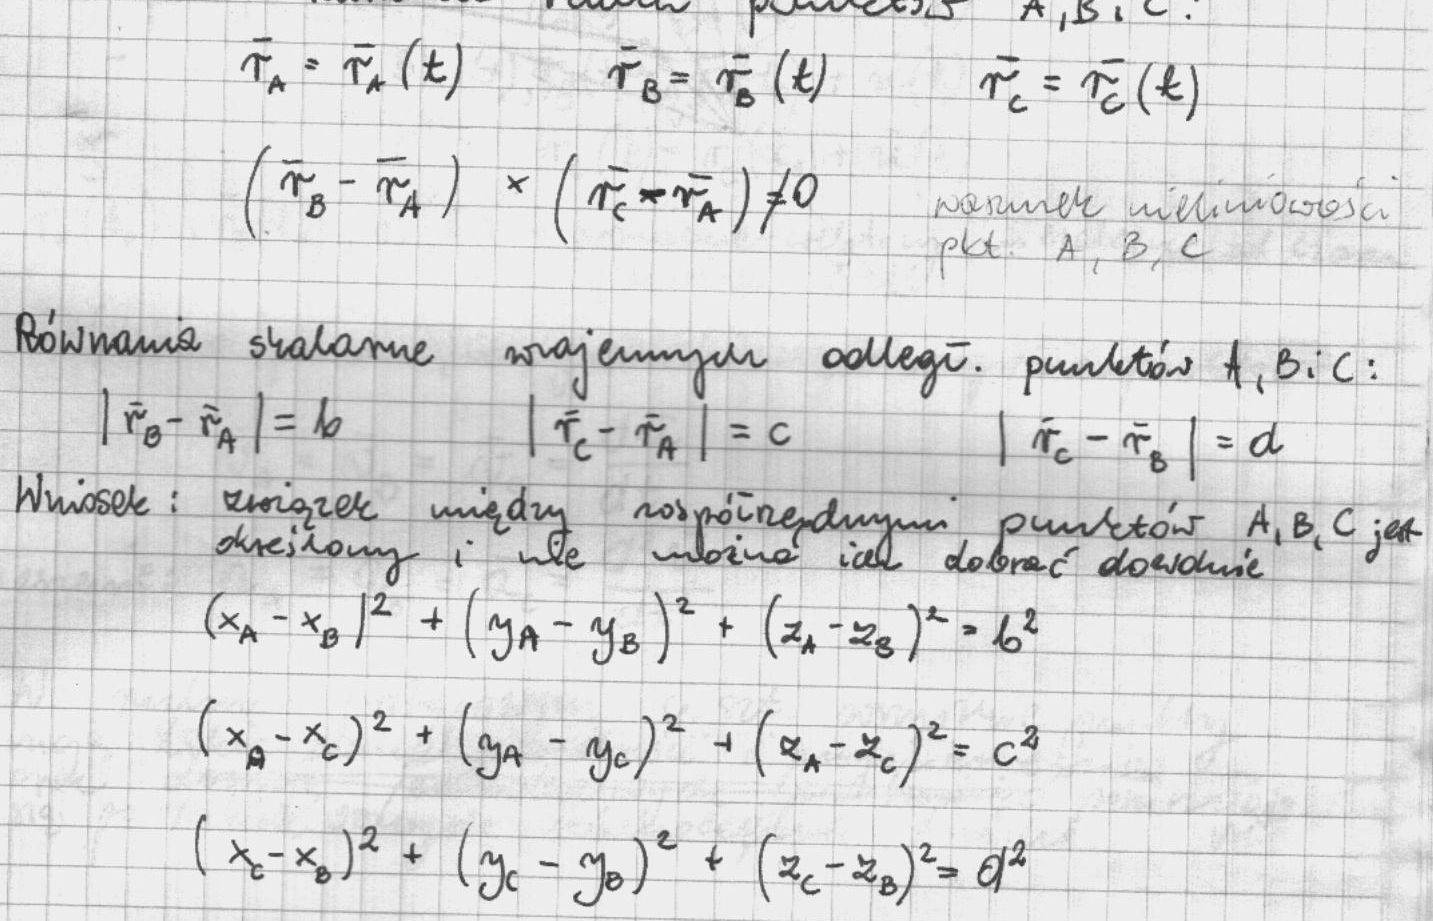 punktów A, B i C:
r̄_A = r̄_A (t) r̄_B = r̄_B (t) r̄_C = r̄_C (t)
(r̄_B - r̄_A) × (r̄_C - r̄_A) ≠ 0 warunek nieliniowości
pkt. A, B, C
Równania skalarne wzajemnych odległ. punktów A, B i C:
|r̄_B - r̄_A| = b |r̄_C - r̄_A| = c |r̄_C - r̄_B| = d
Wniosek: związek między współrzędnymi punktów A, B, C jest
określony i nie można ich dobrać dowolnie
(x_A - x_B)² + (y_A - y_B)² + (z_A - z_B)² = b²
(x_A - x_C)² + (y_A - y_C)² + (z_A - z_C)² = c²
(x_C - x_B)² + (y_C - y_B)² + (z_C - z_B)² = d²